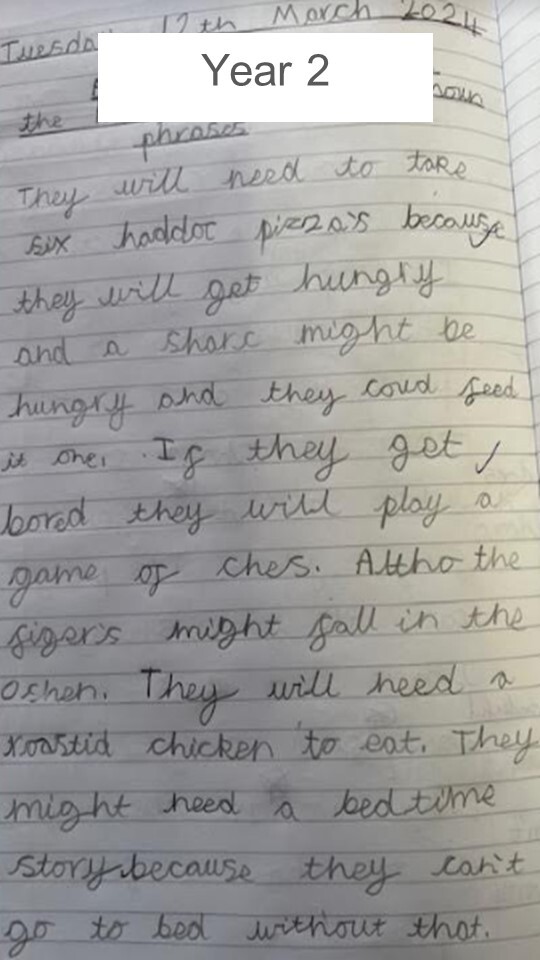 Tuesda 12th March 2024
Year 2
the noun
phrases
They will need to take
six haddoc pizza's because
they will get hungry
and a sharc might be
hungry and they coud feed
it one. If they get
bored they will play a
game of ches. Altho the
figer's might fall in the
oshen. They will need a
roastid chicken to eat. They
might need a bedtime
story because they can't
go to bed without that.